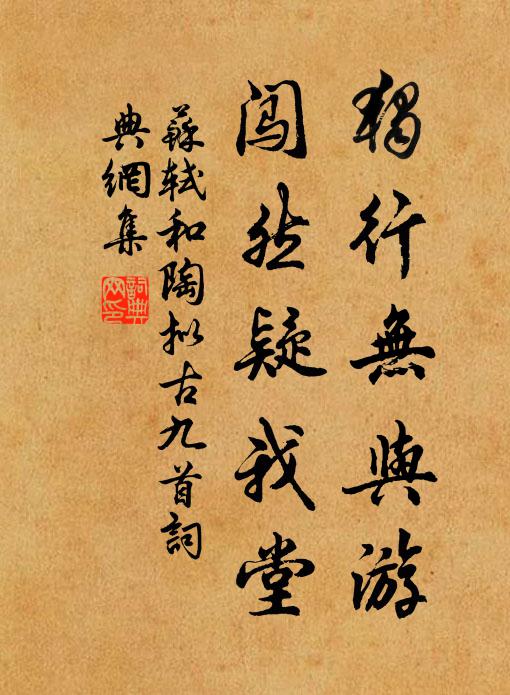 獨行無與游
闯然疑我堂
蘇軾和陶拟古九首詞
典網集
詞典
网印